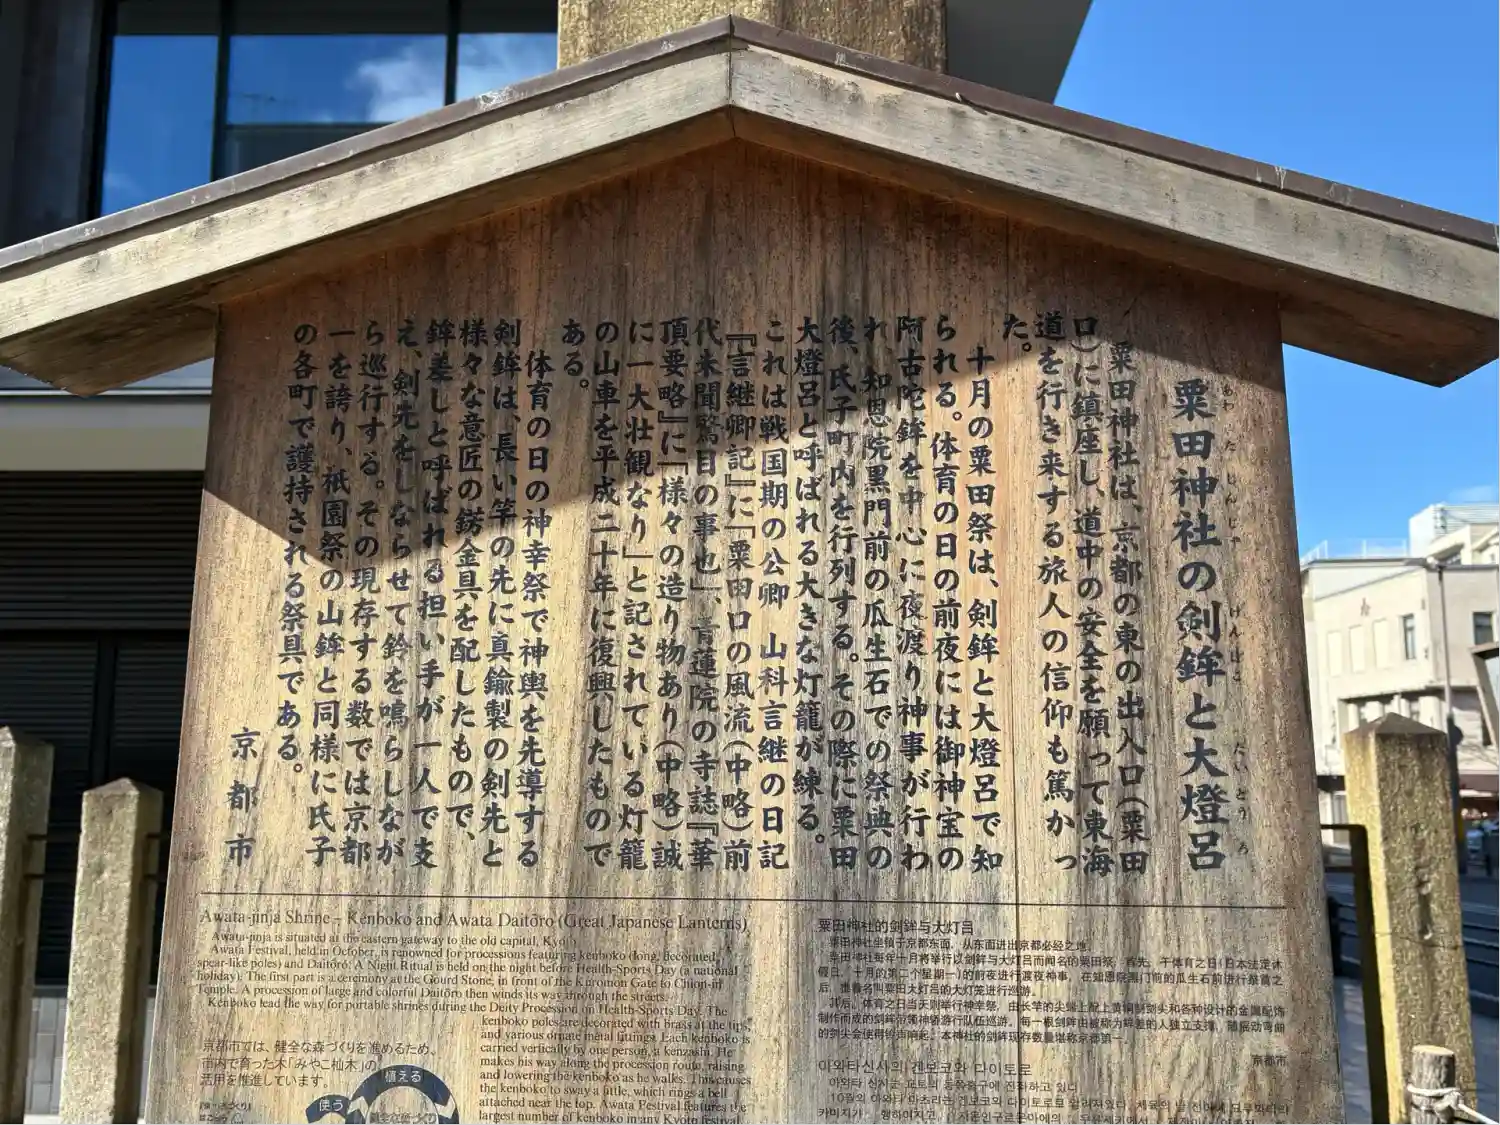 粟田神社の剣鉾と大燈呂
あわたじんじゃ けんほこ だいとうろ
粟田神社は、京都の東の出入口(粟田
口)に鎮座し、道中の安全を願って東海
道を行き来する旅人の信仰も篤かっ
た。
十月の粟田祭は、剣鉾と大燈呂で知
られる。体育の日の前夜には御神宝の
阿古陀鉾を中心に夜渡り神事が行わ
れ、知恩院黒門前の瓜生石での祭典の
後、氏子町内を行列する。その際に粟田
大燈呂と呼ばれる大きな灯籠が練る。
これは戦国期の公卿 山科言継の日記
『言継卿記』に「粟田口の風流(中略)前
代未聞驚目の事也」、青蓮院の寺誌『華
頂要略』に「様々の造り物あり(中略)誠
に一大壮観なり」と記されている灯籠
の山車を平成二十年に復興したもので
ある。
体育の日の神幸祭で神輿を先導する
剣鉾は、長い竿の先に真鍮製の剣先と
様々な意匠の錺金具を配したもので、
鉾差しと呼ばれる担い手が一人で支
え、剣先をしならせて鈴を鳴らしなが
ら巡行する。その現存する数では京都
一を誇り、祇園祭の山鉾と同様に氏子
の各町で護持される祭具である。
京都市
Awata-jinja Shrine – Kenboko and Awata Daitōro (Great Japanese Lanterns)
Awata-jinja is situated at the eastern gateway to the old capital, Kyoto.
Awata Festival, held in October, is renowned for processions featuring kenboko (long, decorated,
spear-like poles) and Daitōro. A Night Ritual is held on the night before Health-Sports Day (a national
holiday). The first part is a ceremony at the Gourd Stone, in front of the Kuromon Gate to Chion-in
Temple. A procession of large and colorful Daitōro then winds its way through the streets.
Kenboko lead the way for portable shrines during the Deity Procession on Health-Sports Day. The
kenboko poles are decorated with brass at the tips,
and various ornate metal fittings. Each kenboko is
carried vertically by one person, a kenzashi. He
makes his way along the procession route, raising
and lowering the kenboko as he walks. This causes
the kenboko to sway a little, which rings a bell
attached near the top. Awata Festival features the
largest number of kenboko in any Kyoto festival
京都市では、健全な森づくりを進めるため、
市内で育った木「みやこ杣木」の
活用を推進しています。
植える
使う
粟田神社的剑鉾与大灯吕
粟田神社坐镇于京都东面、从东面进出京都必经之地。
粟田神社每年十月将举行以剑鉾与大灯吕而闻名的粟田祭。首先、于体育之日(日本法定休
假日、十月的第二个星期一)的前夜进行渡夜神事、在知恩院黑门前的瓜生石前进行祭奠之
后、
其后、体育之日当天则举行神幸祭、由长竿的尖端上配上黄铜制剑尖和各种设计的金属配饰
制作而成的剑鉾带领神轿游行队伍巡游。每一根剑鉾由被称为鉾差的人独立支撑、随晃动弯曲
的剑尖会使得铃声响起。本神社的剑鉾现存数量堪称京都第一。
京都市
아와타신사의 겐보코와 다이토로